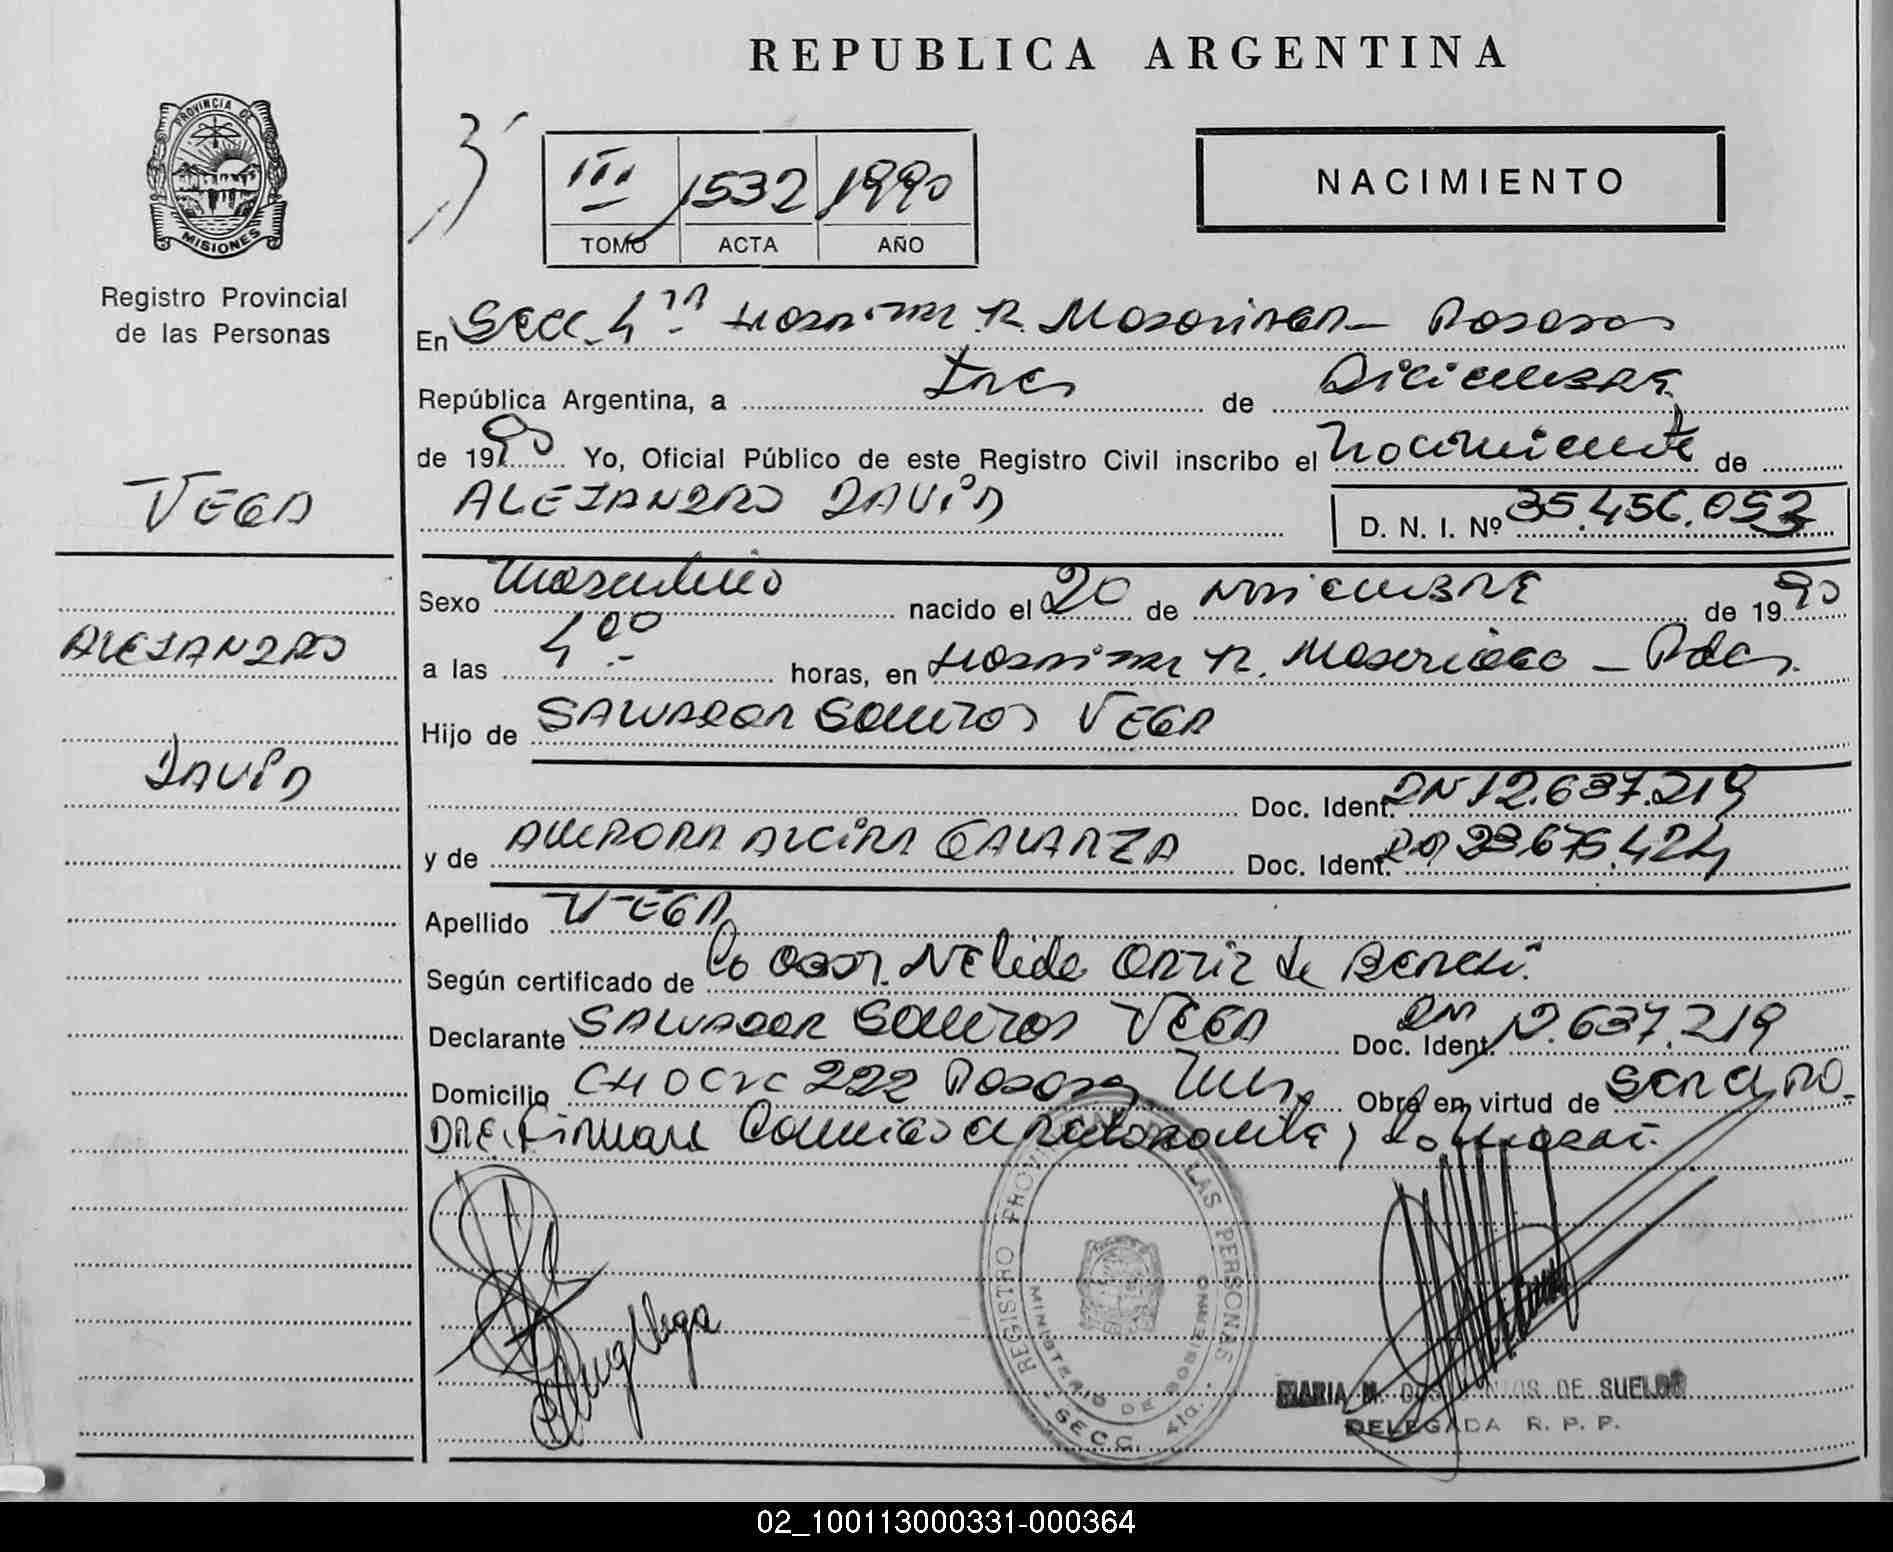 REPUBLICA ARGENTINA
PROVINCIA DE
MISIONES
Registro Provincial
de las Personas
III 1532 1990
TOMO ACTA AÑO
NACIMIENTO
En Secc. 4ta Hospital R. Madariaga - Posadas
República Argentina, a tres de Diciembre
de 1990 Yo, Oficial Público de este Registro Civil inscribo el Nacimiento de
ALEJANDRO DAVID D. N. I. Nº 35.456.053
VEGA
ALEJANDRO
DAVID
Sexo Masculino nacido el 20 de Noviembre de 1990
a las 4 00 horas, en Hospital R. Madariaga - Pdas.
Hijo de SALVADOR VEGA
Doc. Ident. DNI 12.637.219
y de AURORA ALCIRA GALARZA Doc. Ident. 23.675.424
Apellido VEGA
Según certificado de la Obst. Nelida Ortiz de
Declarante SALVADOR VEGA Doc. Ident. DNI 12.637.219
Domicilio 222 Posadas Mnes. Obra en virtud de ser el PA-
DRE. Firman
REGISTRO PROVINCIAL DE LAS PERSONAS
MINISTERIO DE GOBIERNO
SECC. 4ta.
Vega
MARIA M. DOS SANTOS DE SUELDO
DELEGADA R. P. P.
02_100113000331-000364